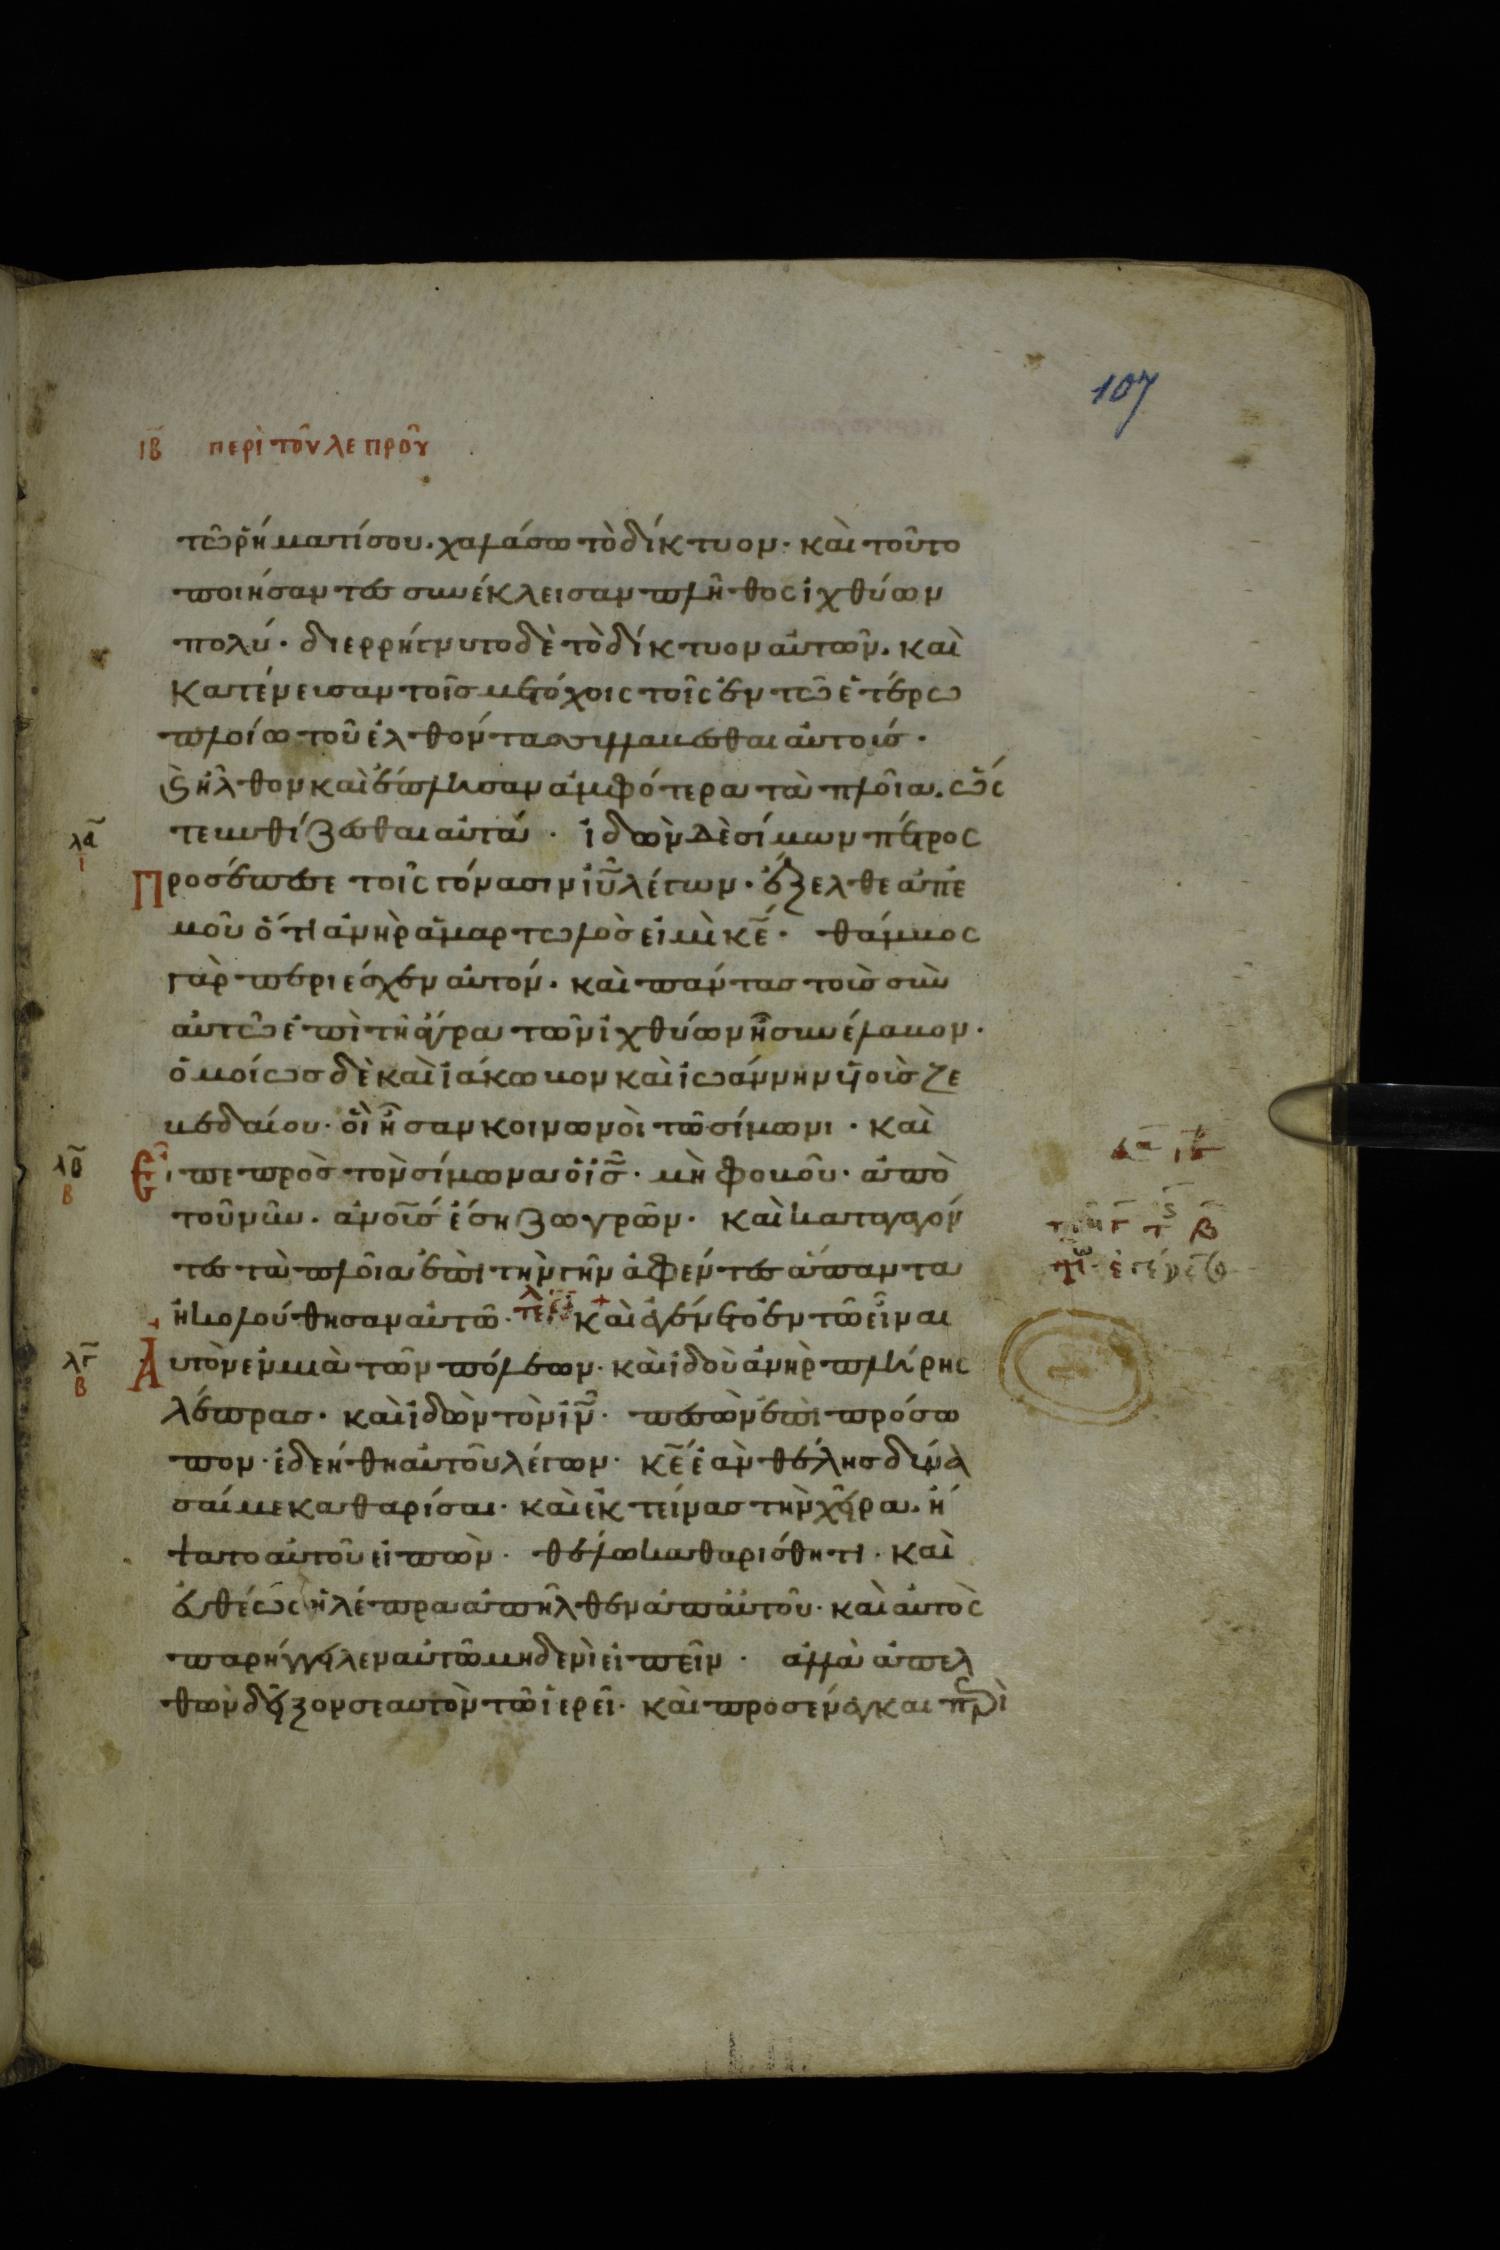 107
ιβ περὶ τοῦ λεπροῦ
τῶ ῥήματί σου. χαλάσω τὸ δίκτυον· καὶ τοῦτο
ποιήσαντες συνέκλεισαν πλῆθος ἰχθύων
πολύ· διερρήγνυτο δὲ τὸ δίκτυον αὐτῶν. καὶ
κατένεισαν τοῖς μετόχοις τοῖς ἐν τῶ ἑτέρω
πλοίω τοῦ ἐλθόντας συλλαβέσθαι αὐτοῖς·
καὶ ἦλθον καὶ ἔπλησαν ἀμφότερα τὰ πλοῖα. ὥσ
λα τε βυθίζεσθαι αὐτά· ἰδὼν δὲ σίμων πέτρος
ι Προσέπεσε τοῖς γόνασιν ἰῦ λέγων· ἔξελθε ἀπ' ἐ
μοῦ ὅτι ἀνὴρ ἁμαρτωλός εἰμὶ κε̄· θάμβος
γὰρ περιέσχεν αὐτόν. καὶ πάντας τοὺς σὺν
αὐτῶ ἐπὶ τῆ ἄγρα τῶν ἰχθύων ἧ συνέλαβον·
ὁμοίως δὲ καὶ ἰάκωβον καὶ ἰωάννην υἱοὺς ζε
βεδαίου· οἳ ἦσαν κοινωνοὶ τῶ σίμωνι· καὶ
λβ β Εἶπε πρὸς τὸν σίμωνα ὁ ἰς̄· μὴ φοβοῦ· ἀπὸ
τοῦ νῦν. ἀνοῖς ἔση ζωγρῶν· καὶ καταγαγόν
τες τὰ πλοῖα ἐπὶ τὴν γῆν ἀφέντες ἅπαντα
ἠκολούθησαν αὐτῶ· καὶ ἐγένετο ἐν τῶ εἶναι
λγ β Αὐτὸν ἐν μιᾶ τῶν πόλεων· καὶ ἰδοὺ ἀνὴρ πλήρης
λέπρας· καὶ ἰδὼν τὸν ἰν̄· πεσὼν ἐπὶ πρόσω
πον· ἐδεήθη αὐτοῦ λέγων· κε̄ ἐὰν θέλης δύνα
σαί με καθαρίσαι· καὶ ἐκτείνας τὴν χεῖρα. ἥ
ψατο αὐτοῦ εἰπὼν· θέλω καθαρίσθητι· καὶ
εὐθέως ἡ λέπρα ἀπῆλθεν ἀπ' αὐτοῦ· καὶ αὐτὸς
παρήγγειλεν αὐτῶ μηδενὶ εἰπεῖν· ἀλλὰ ἀπελ
θὼν δεῖξον σεαυτὸν τῶ ἱερεῖ· καὶ προσένεγκαι περὶ